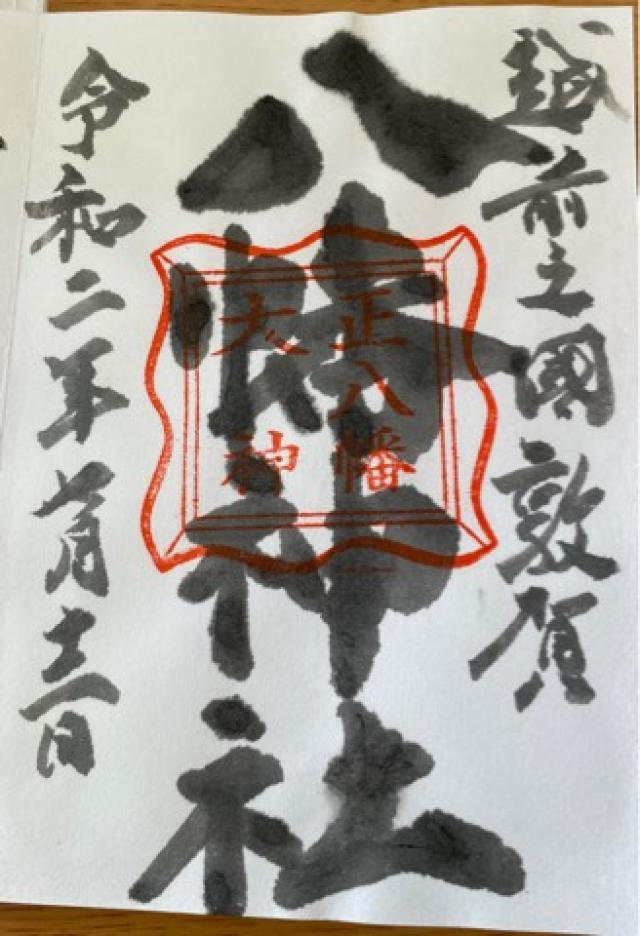 越前之國敦賀
八幡神社
正八幡
大神
令和二年 月 日